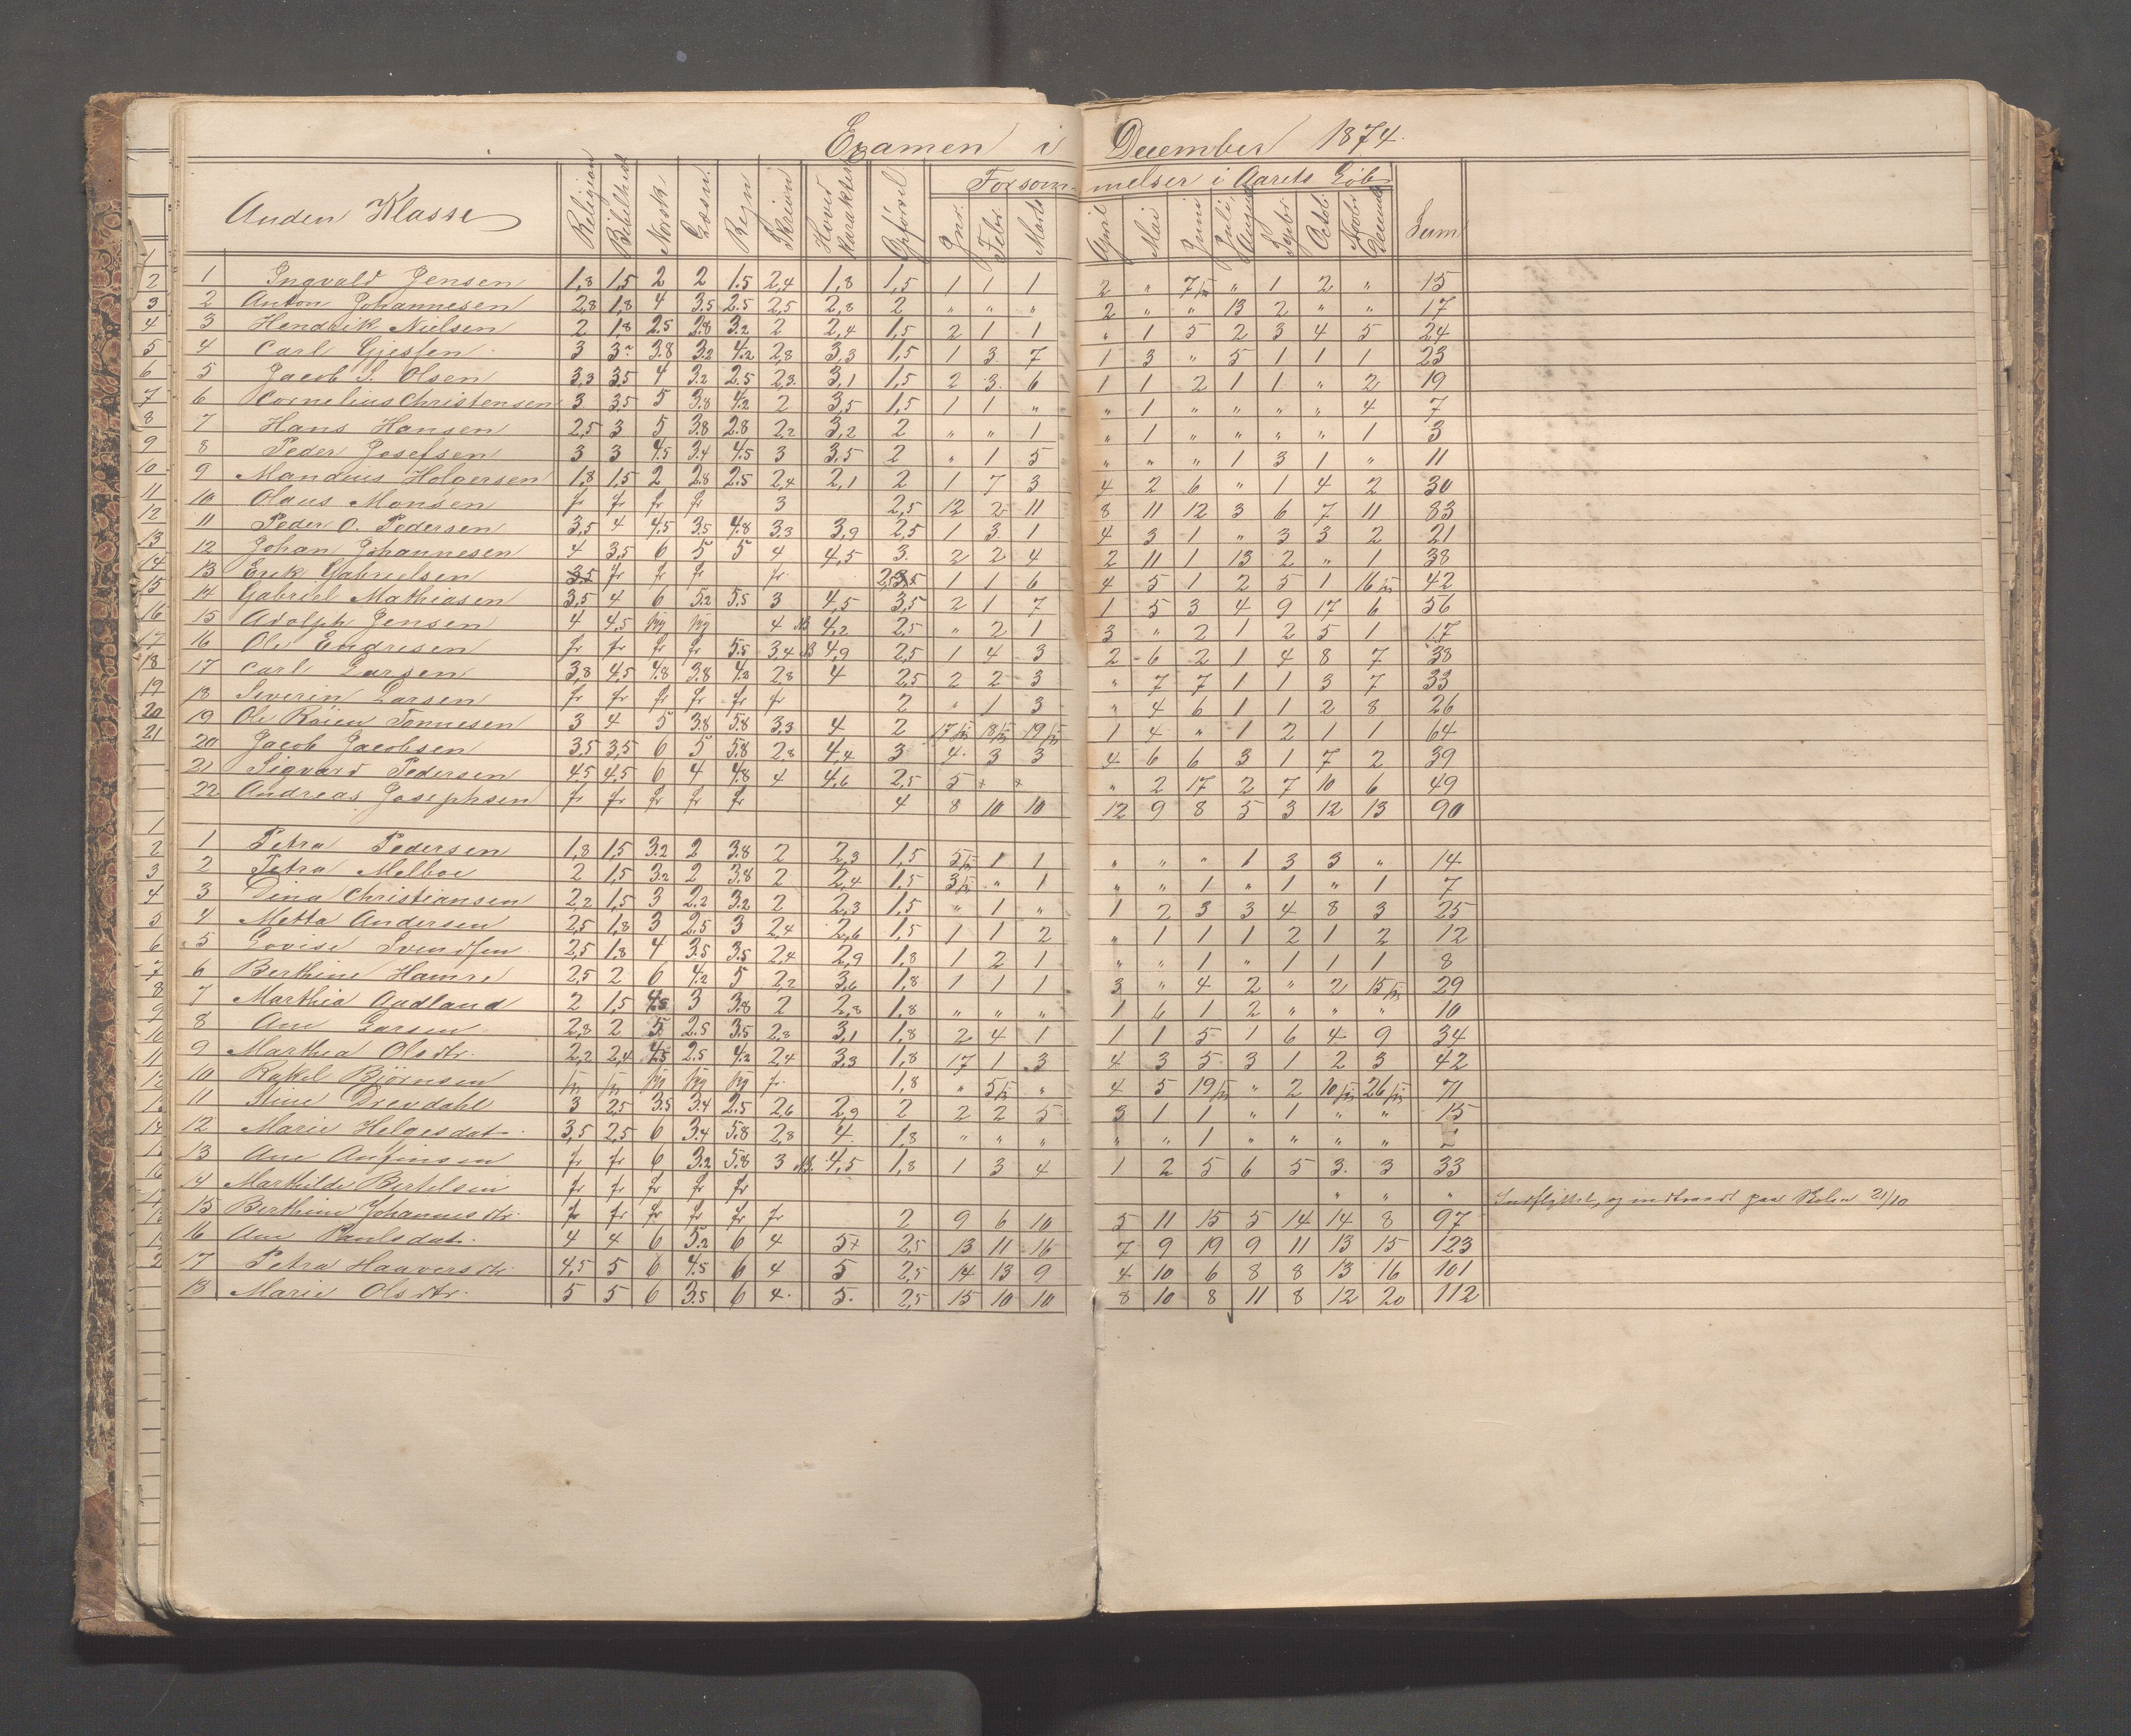 Examen i December 1874.
Anden Klasse Religion Bibelhist Norsk Læsn. Regn Skrivn Hoved Karakter Opførsel Forsømmelser i Aarets Løb Sum
Jnr. Febr. Marts April Mai Juni Juli August Septbr Octob. Novbr Decemb
1 Ingvald Jensen 1,8 1,5 2 2 1.5 2,4 1,8 1,5 1 1 1 2 " 7/5 " 1 2 " 15
2 Anton Johannesen 2,8 1,8 4 3.5 2.5 2,5 2,8 2 " " " 2 " " 13 2 " " 17
3 Hendrik Nielsen 2 1,8 2.5 2.8 3.2 2 2,4 1,5 2 1 1 " 1 5 2 3 4 5 24
4 Carl Gjesten 3 3 3.8 3.2 4.2 2,8 3,3 1,5 1 3 7 1 3 " 5 1 1 1 23
5 Jacob S. Olsen 3,3 3,5 4 3.2 2.5 2,3 3,1 1,5 2 3 6 1 1 2 1 1 " 2 19
6 Cornelius Christensen 3 3,5 5 3.8 4.2 2 3,5 1,5 1 1 " " 1 " " " " 4 7
7 Hans Hansen 2,5 3 5 3.8 2.8 2,2 3,2 2 " " 1 " 1 " " " " 1 3
8 Peder Josefsen 3 3 4.5 3.4 4.5 3 3,5 2 " 1 5 " " " 1 3 1 " 11
9 Mandius Holgersen 1,8 1,5 2 2.8 2.5 2,4 2,1 2 1 7 3 4 2 6 " 1 4 2 30
10 Olaus Monsen fr fr fr fr 3 2,5 12 2 11 8 11 12 3 6 7 11 83
11 Peder O. Pedersen 3,5 4 4,5 3.5 4.8 3,3 3,9 2,5 1 3 1 4 3 1 " 3 3 2 21
12 Johan Johannesen 4 3,5 6 5 5 4 4,5 3. 2 2 4 2 11 1 13 2 " 1 38
13 Erik Gabrielsen 3,5 fr fr fr fr 2,5 1 1 6 4 5 1 2 5 1 16 42
14 Gabriel Mathiasen 3,5 4 6 5.2 5.5 3 4,5 3,5 2 1 7 1 5 3 4 9 17 6 56
15 Adolph Jensen 4 4,5 4 NB 4,2 2,5 " 2 1 3 " 2 1 2 5 1 17
16 Ole Endresen fr fr fr fr 5.5 3,4 NB 4,9 2,5 1 4 3 2 6 2 1 4 8 7 38
17 Carl Larsen 3,8 4,5 4.8 3.8 4.2 2,8 4 2,5 2 2 3 " 7 7 1 1 3 7 33
18 Severin Larsen fr fr fr fr fr fr 2 " 1 3 " 4 6 1 1 2 8 26
19 Ole Røien Tønnesen 3 4 5 3.8 5.8 3,3 4 2 17 18 19 1 4 " 1 2 1 1 64
20 Jacob Jacobsen 3,5 3,5 6 5 5.8 2,8 4,4 3 4. 3 3 4 6 6 3 1 7 2 39
21 Sigvard Pedersen 4,5 4,5 6 4 4.8 4 4,6 2,5 5 " 2 17 2 7 10 6 49
22 Andreas Josephsen fr fr fr fr fr 4 8 10 10 12 9 8 5 3 12 13 90
1 Petra Pedersen 1,8 1,5 3.2 2 3.8 2 2,3 1,5 5 1 1 " " " 1 3 3 " 14
2 Petra Melboe 2 1,5 3.2 2 3.8 2 2,4 1,5 3 " 1 " " 1 " 1 " 1 7
3 Dina Christiansen 2,2 1,5 3 2.2 3.2 2 2,3 1,5 " 1 " 1 2 3 3 4 8 3 25
4 Metta Andersen 2,5 1,8 3 2.5 3 2,4 2,6 1,5 1 1 2 " 1 1 1 2 1 2 12
5 Lovise Svendsen 2,5 1,8 4 3.5 3.5 2,4 2,9 1,8 1 2 1 " " 1 " 1 1 1 8
6 Berthine Hamre 2,5 2 6 4.2 5 2,2 3,6 1,8 1 1 1 3 " 4 2 " 2 15 29
7 Marthia Aadland 2 1,5 4.5 3 3.8 2 2,8 1,8 " " " 1 6 1 2 " " " 10
8 Ane Larsen 2,8 2 5 2.5 3.5 2,8 3,1 1,8 2 4 1 1 1 5 1 6 4 9 34
9 Marthea Olsdtr. 2,2 2,4 4.5 2.5 4.2 2,4 3,3 1,8 17 1 3 4 3 5 3 1 2 3 42
10 Rakel Bjørnsen fr. 1,8 " 5 " 4 5 19 " 2 10 26 71
11 Stine Drevdahl 3 2,5 3.5 3.4 2.5 2,6 2,9 2 2 2 5 3 1 1 " 1 " " 15
12 Marie Helgesdat. 3,5 2,5 6 3.4 5.8 2,8 4. 1,8 " " " " " 1 " " " "
13 Ane Anfinsen fr fr 6 3.2 5.8 3 NB. 4,5 1,8 1 3 4 1 2 5 6 5 3. 3 33
14 Mathilde Bertelsen fr fr fr fr fr " " " Indflyttet, og indtraadt paa Skolen 21/10
15 Berthine Johannesdtr. fr fr fr fr fr fr 2 9 6 10 5 11 15 5 14 14 8 97
16 Ane Paulsdat. 4 4 6 5.2 6 4 5+ 2,5 13 11 16 7 9 19 9 11 13 15 123
17 Petra Haaversdt. 4,5 5 6 4.5 6 4 5 2,5 14 13 9 4 10 6 8 8 13 16 101
18 Marie Olsdtr. 5 5 6 3.5 6 4. 5. 2,5 15 10 10 8 10 8 11 8 12 20 112